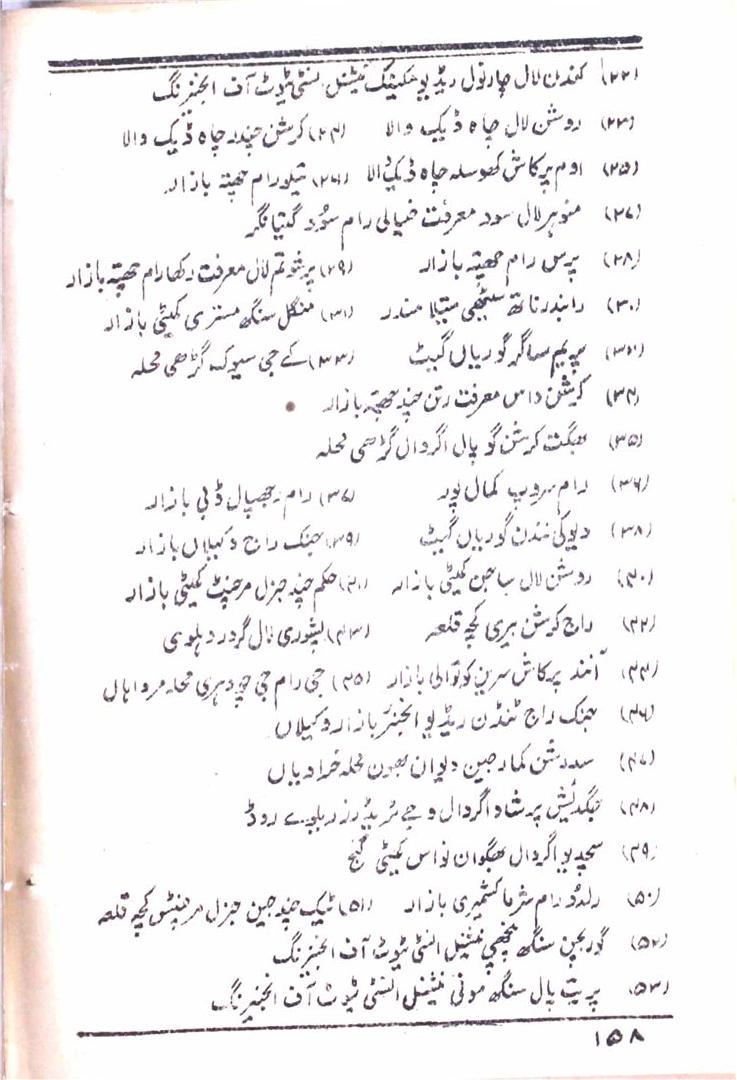 (۲۲) کندن لال چارنول ریڈیو مکینک نیشنل انسٹی ٹیوٹ آف انجنیرنگ
(۲۳) روشن لال چاہ ڈیک والا (۲۴) کرشن چندر چاہ ڈیک والا
(۲۵) اوم پرکاش کھوسلہ چاہ ڈیک والا (۲۶) تیلو رام چھپتہ بازار
(۲۷) منوہر لال سود معرفت خیالی رام سُود گیتا نگر
(۲۸) پرس رام چھپتہ بازار (۲۹) پرشوتم لال معرفت رکھا رام چھپتہ بازار
(۳۰) رابندر ناتھ سیٹھی سیتلا مندر (۳۱) منگل سنگھ مستری کمیٹی بازار
پریم ساگر گوریاں گیٹ (۳۳) کے جی سیوک گڑھی محلہ
(۳۴) کرشن داس معرفت رتن چند چھپتہ بازار
(۳۵) بھگت کرشن گوپال اگروال گڑھی محلہ
(۳۶) رام سروپ کمال پور (۳۷) رام رچھپال ڈبی بازار
(۳۸) دیوکی نندن گوریاں گیٹ (۳۹) جنک راج وکیلاں بازار
(۴۰) روشن لال ساجن کمیٹی بازار (۴۱) حکم چند جنرل مرچنٹ کمیٹی بازار
(۴۲) راج کرشن بیری کچہ قلعہ (۴۳) پشوری لال گرور دہلوی
(۴۴) آنند پرکاش سرین کوتوالی بازار (۴۵) جی رام جی چودہری محلہ مرواہاں
(۴۶) جنک راج ٹنڈن ریڈیو انجنئر بازار وکیلاں
(۴۷) سدرشن کمار جین دیوان بھون محلہ خرادیاں
(۴۸) جگدیش پرشاد اگروال وجے ٹریڈرز ریلوے روڈ
(۴۹) سچدیو اگروال بھگوان نواس کمیٹی گنج
(۵۰) رلدُو رام شرما کشمیری بازار (۵۱) ٹیک چند جین جنرل مرچنٹس کچہ قلعہ
(۵۲) گوربچن سنگھ پنچھی نیشنل انسٹی ٹیوٹ آف انجنیرنگ
(۵۳) پریت پال سنگھ مونی نیشنل انسٹی ٹیوٹ آف انجنیرنگ
۱۵۸